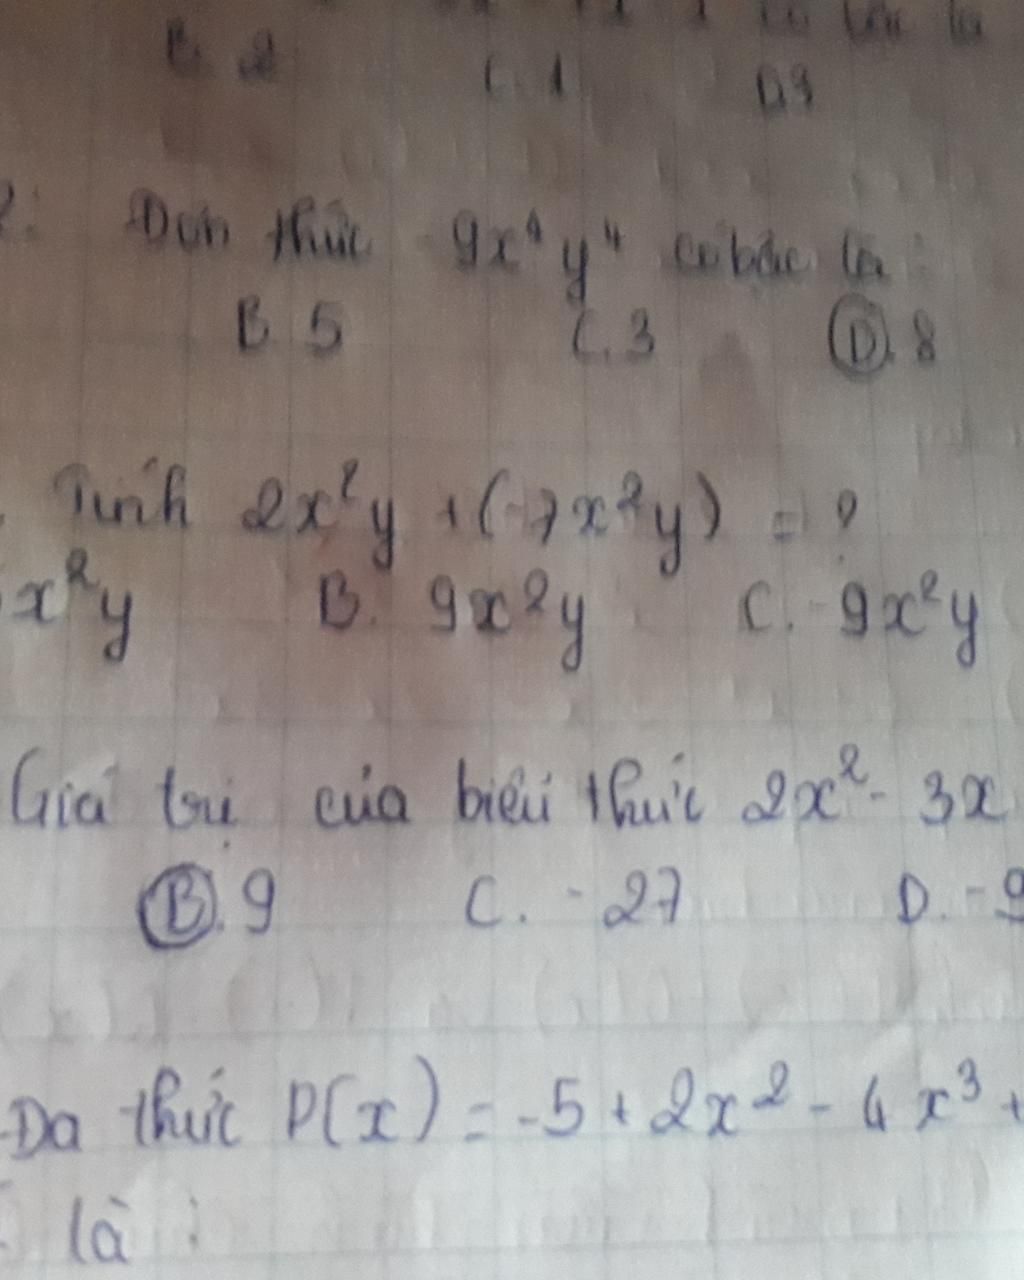 B. 2 C. 1 D. 9
2: Đơn thức 9x⁴y⁴ có bậc là :
B. 5 C. 3 D. 8
Tính 2x²y + (-7x²y) = ?
x²y B. 9x²y C. -9x²y
Giá trị của biểu thức 2x² - 3x
B. 9 C. -27 D. -9
Đa thức P(x) = -5 + 2x² - 4x³ +
là :